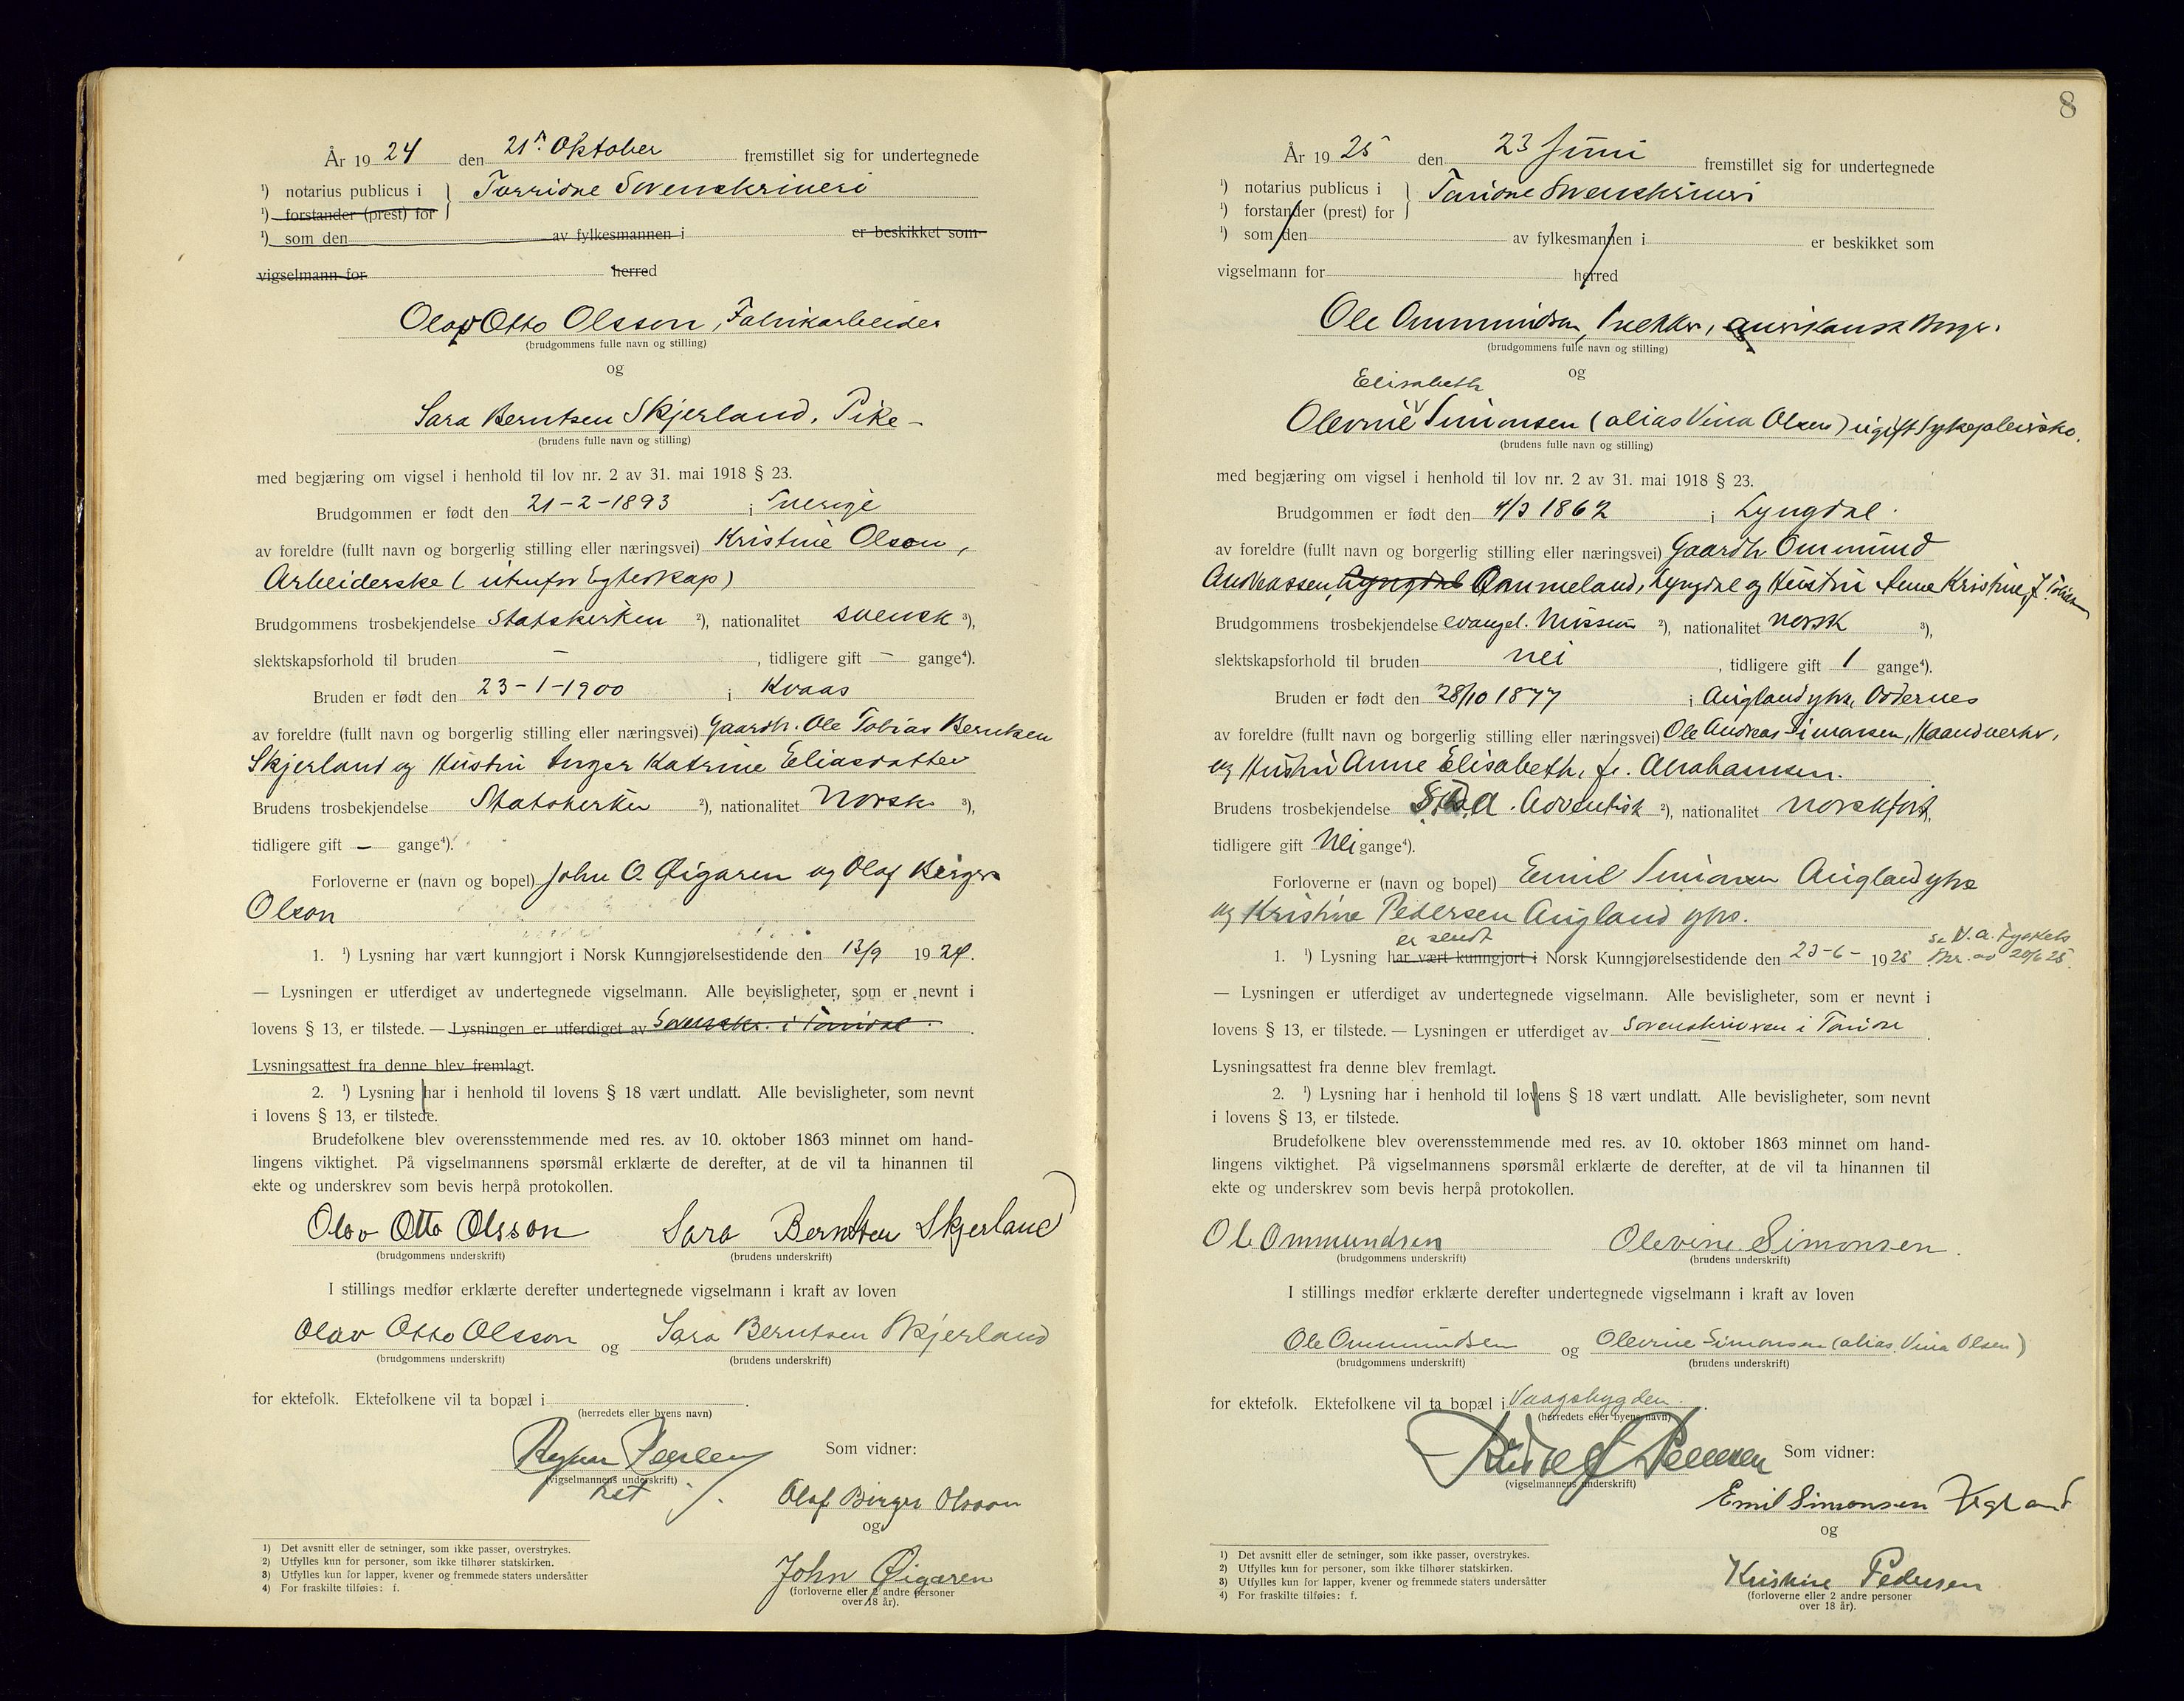 År 1924 den 21de Oktober fremstillet sig for undertegnede
¹) notarius publicus i } Torridal Sorenskriveri
¹) forstander (prest) for
¹) som den av fylkesmannen i er beskikket som
vigselmann for herred
Olav Otto Olsson, Fabrikarbeider
(brudgommens fulle navn og stilling)
og
Sara Berntsen Skjerland, Pike –
(brudens fulle navn og stilling)
med begjæring om vigsel i henhold til lov nr. 2 av 31. mai 1918 § 23.
Brudgommen er født den 21-2-1893 i Sverige
av foreldre (fullt navn og borgerlig stilling eller næringsvei) Kristine Olson,
Arbeiderske (utenfor Egteskap)
Brudgommens trosbekjendelse Statskirken ²), nationalitet svensk ³),
slektskapsforhold til bruden – , tidligere gift – gange⁴).
Bruden er født den 23-1-1900 i Kvaas
av foreldre (fullt navn og borgerlig stilling eller næringsvei) Gaardbr. Ole Tobias Berntsen
Skjerland og Hustru Inger Katrine Eliasdatter
Brudens trosbekjendelse Statskirken ²), nationalitet Norsk ³),
tidligere gift – gange⁴).
Forloverne er (navn og bopel) John O. Øigaren og Olaf Birger
Olson
1. ¹) Lysning har vært kunngjort i Norsk Kunngjørelsestidende den 13/9 1924.
— Lysningen er utferdiget av undertegnede vigselmann. Alle bevisligheter, som er nevnt i
lovens § 13, er tilstede. — Lysningen er utferdiget av Sorenskr. i Torridal.
Lysningsattest fra denne blev fremlagt.
2. ¹) Lysning har i henhold til lovens § 18 vært undlatt. Alle bevisligheter, som nevnt
i lovens § 13, er tilstede.
Brudefolkene blev overensstemmende med res. av 10. oktober 1863 minnet om hand-
lingens viktighet. På vigselmannens spørsmål erklærte de derefter, at de vil ta hinannen til
ekte og underskrev som bevis herpå protokollen.
Olav Otto Olsson Sara Berntsen Skjerland
(brudgommens underskrift) (brudens underskrift)
I stillings medfør erklærte derefter undertegnede vigselmann i kraft av loven
Olav Otto Olsson og Sara Berntsen Skjerland
(brudgommens underskrift) (brudens underskrift)
for ektefolk. Ektefolkene vil ta bopæl i .
(herredets eller byens navn)
Som vidner:
(vigselmannens underskrift)
Olaf Birger Olsson
og
John Øigaren
(forloverne eller 2 andre personer
over 18 år).
1) Det avsnitt eller de setninger, som ikke passer, overstrykes.
2) Utfylles kun for personer, som ikke tilhører statskirken.
3) Utfylles kun for lapper, kvener og fremmede staters undersåtter
4) For fraskilte tilføies: f.
8
År 1925 den 23 Juni fremstillet sig for undertegnede
¹) notarius publicus i } Torridal Sorenskriveri
¹) forstander (prest) for
¹) som den av fylkesmannen i er beskikket som
vigselmann for herred
Ole Ommundsen, Snekker, amerikansk Borger.
(brudgommens fulle navn og stilling)
og
Elisabeth
Olevine Simonsen (alias Vina Olsen) ugift Sykepleierske.
(brudens fulle navn og stilling)
med begjæring om vigsel i henhold til lov nr. 2 av 31. mai 1918 § 23.
Brudgommen er født den 4/3 1862 i Lyngdal.
av foreldre (fullt navn og borgerlig stilling eller næringsvei) Gaardbr Ommund
Andreassen Lyngdal Ommeland, Lyngdal og Hustru Anne Kristine, f. Tobiasen
Brudgommens trosbekjendelse evangel. Mission ²), nationalitet norsk ³),
slektskapsforhold til bruden nei , tidligere gift 1 gange⁴).
Bruden er født den 28/10 1877 i Auglandsghra, Oddernes
av foreldre (fullt navn og borgerlig stilling eller næringsvei) Ole Andreas Simonsen, Haandverker,
og Hustru Anne Elisabeth, f. Abrahamsen.
Brudens trosbekjendelse Adventisk ²), nationalitet norskfødt,
tidligere gift Nei gange⁴).
Forloverne er (navn og bopel) Emil Simonsen
og Kristine Pedersen
er sendt
1. ¹) Lysning har vært kunngjort i Norsk Kunngjørelsestidende den 23-6- 1925
— Lysningen er utferdiget av undertegnede vigselmann. Alle bevisligheter, som er nevnt i
lovens § 13, er tilstede. — Lysningen er utferdiget av Sorenskriveren i Torridal.
Lysningsattest fra denne blev fremlagt.
2. ¹) Lysning har i henhold til lovens § 18 vært undlatt. Alle bevisligheter, som nevnt
i lovens § 13, er tilstede.
Brudefolkene blev overensstemmende med res. av 10. oktober 1863 minnet om hand-
lingens viktighet. På vigselmannens spørsmål erklærte de derefter, at de vil ta hinannen til
ekte og underskrev som bevis herpå protokollen.
Ole Ommundsen Olevine Simonsen.
(brudgommens underskrift) (brudens underskrift)
I stillings medfør erklærte derefter undertegnede vigselmann i kraft av loven
Ole Ommundsen og Olevine Simonsen (alias Vina Olsen)
(brudgommens underskrift) (brudens underskrift)
for ektefolk. Ektefolkene vil ta bopæl i Vaagsbygden.
(herredets eller byens navn)
Som vidner:
(vigselmannens underskrift)
Emil Simonsen Augland
og
Kristine Pedersen
(forloverne eller 2 andre personer
over 18 år).
1) Det avsnitt eller de setninger, som ikke passer, overstrykes.
2) Utfylles kun for personer, som ikke tilhører statskirken.
3) Utfylles kun for lapper, kvener og fremmede staters undersåtter
4) For fraskilte tilføies: f.